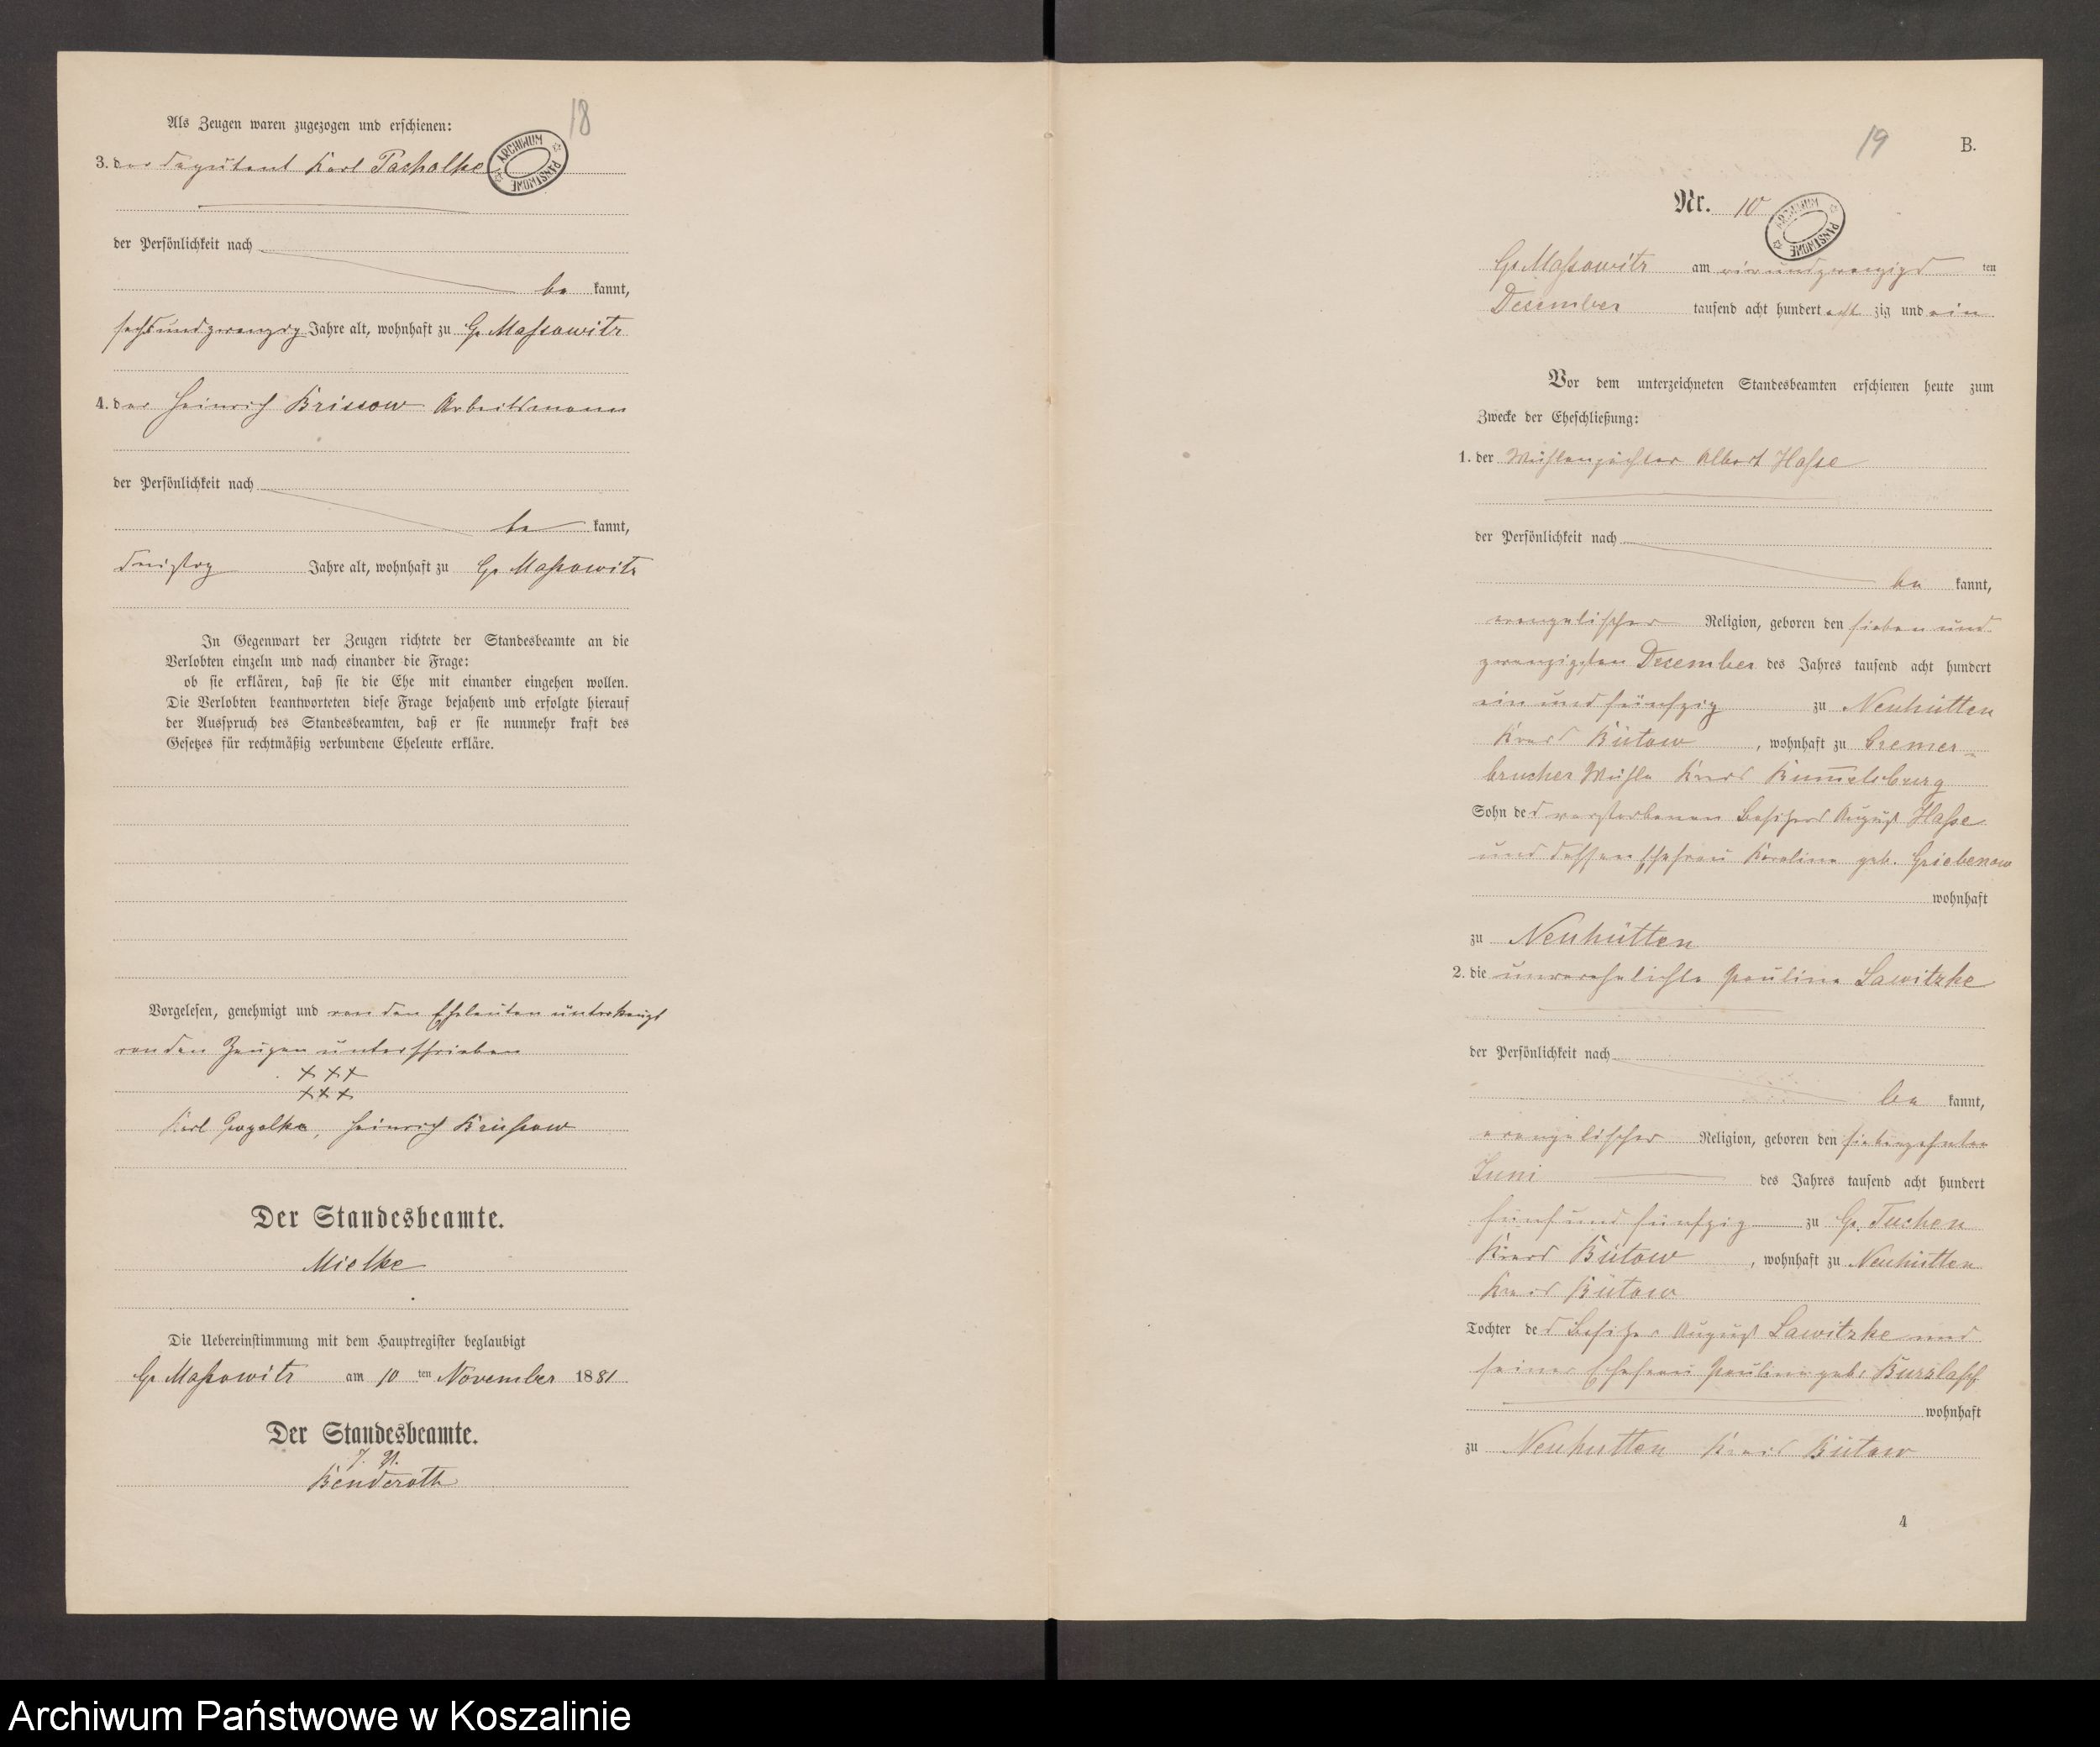 18
Als Zeugen waren zugezogen und erschienen:
3. der Deputant Karl Pacholke
ARCHIWUM PAŃSTWOWE
der Persönlichkeit nach
be kannt,
sechsundzwanzig Jahre alt, wohnhaft zu Gr Massowitz
4. der Heinrich Brissow Arbeitsmann
der Persönlichkeit nach
be kannt,
dreißig Jahre alt, wohnhaft zu Gr Massowitz
In Gegenwart der Zeugen richtete der Standesbeamte an die
Verlobten einzeln und nach einander die Frage:
ob sie erklären, daß sie die Ehe mit einander eingehen wollen.
Die Verlobten beantworteten diese Frage bejahend und erfolgte hierauf
der Ausspruch des Standesbeamten, daß er sie nunmehr kraft des
Gesetzes für rechtmäßig verbundene Eheleute erkläre.
Vorgelesen, genehmigt und von den Eheleuten unterkreuzt
von den Zeugen unterschrieben
XXX
XXX
Karl Heinrich
Der Standesbeamte.
Mielke
Die Uebereinstimmung mit dem Hauptregister beglaubigt
Gr Massowitz am 10 ten November 1881
Der Standesbeamte.
Benderoth
19
B.
Nr. 10
ARCHIWUM PAŃSTWOWE
Gr Massowitz am vierundzwanzigs ten
December tausend acht hundert acht zig und ein
Vor dem unterzeichneten Standesbeamten erschienen heute zum
Zwecke der Eheschließung:
1. der Mühlenpächter Albert Hasse
der Persönlichkeit nach
be kannt,
evangelischer Religion, geboren den sieben und
zwanzigsten December des Jahres tausend acht hundert
ein und fünfzig zu Neuhütten
Kreis Bütow, wohnhaft zu Cremer-
brucher Mühle Kreis Rummelsburg
Sohn des verstorbenen Besitzers August Hasse
und dessen Ehefrau Karoline geb. Griebenow
wohnhaft
zu Neuhütten
2. die unverehelichte Pauline Lawitzke
der Persönlichkeit nach
be kannt,
evangelischer Religion, geboren den siebenzehnten
Juni des Jahres tausend acht hundert
fünf und fünfzig zu Gr. Tuchen
Kreis Bütow, wohnhaft zu Neuhütten
Kreis Bütow
Tochter des Besitzer August Lawitzke und
seiner Ehefrau Pauline geb. Burzlaff
wohnhaft
zu Neuhutten Kreis Bütow
4
Archiwum Państwowe w Koszalinie